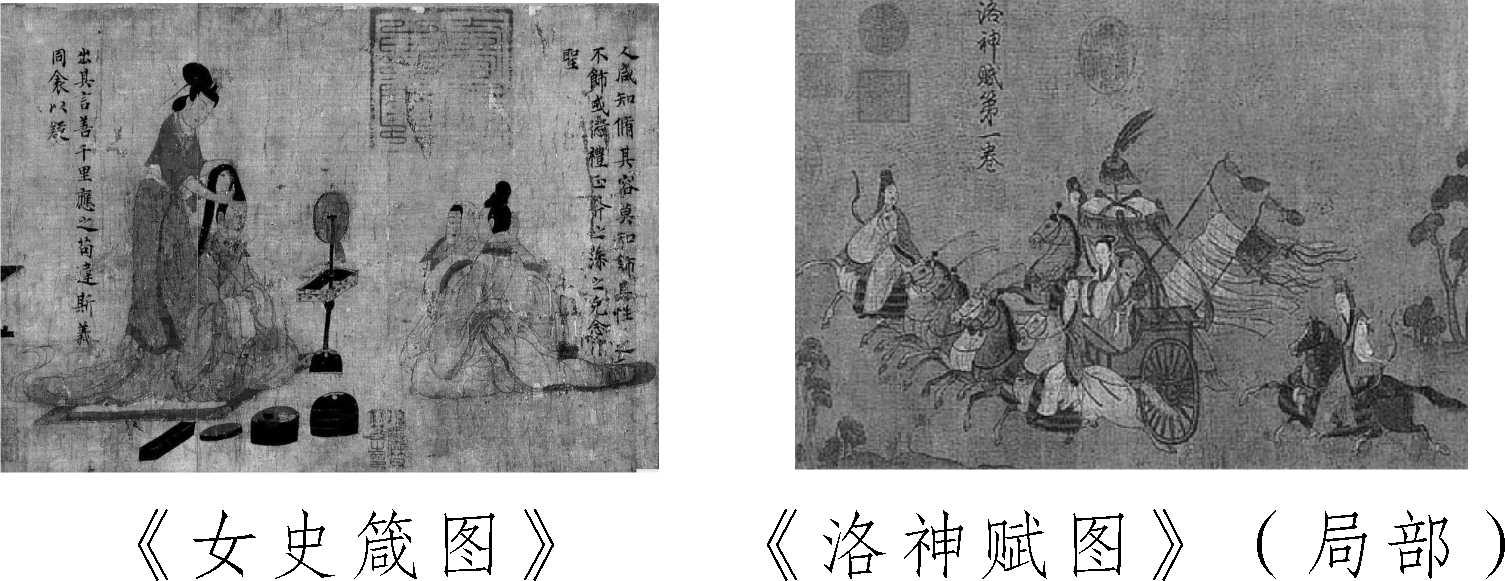 人咸知脩其容莫知飾其性之
不飾或愆禮正斧之藻之克念作
聖
出其言善千里應之苟違斯義
同衾以疑
洛神賦第一卷
《女史箴图》
《洛神赋图》(局部)